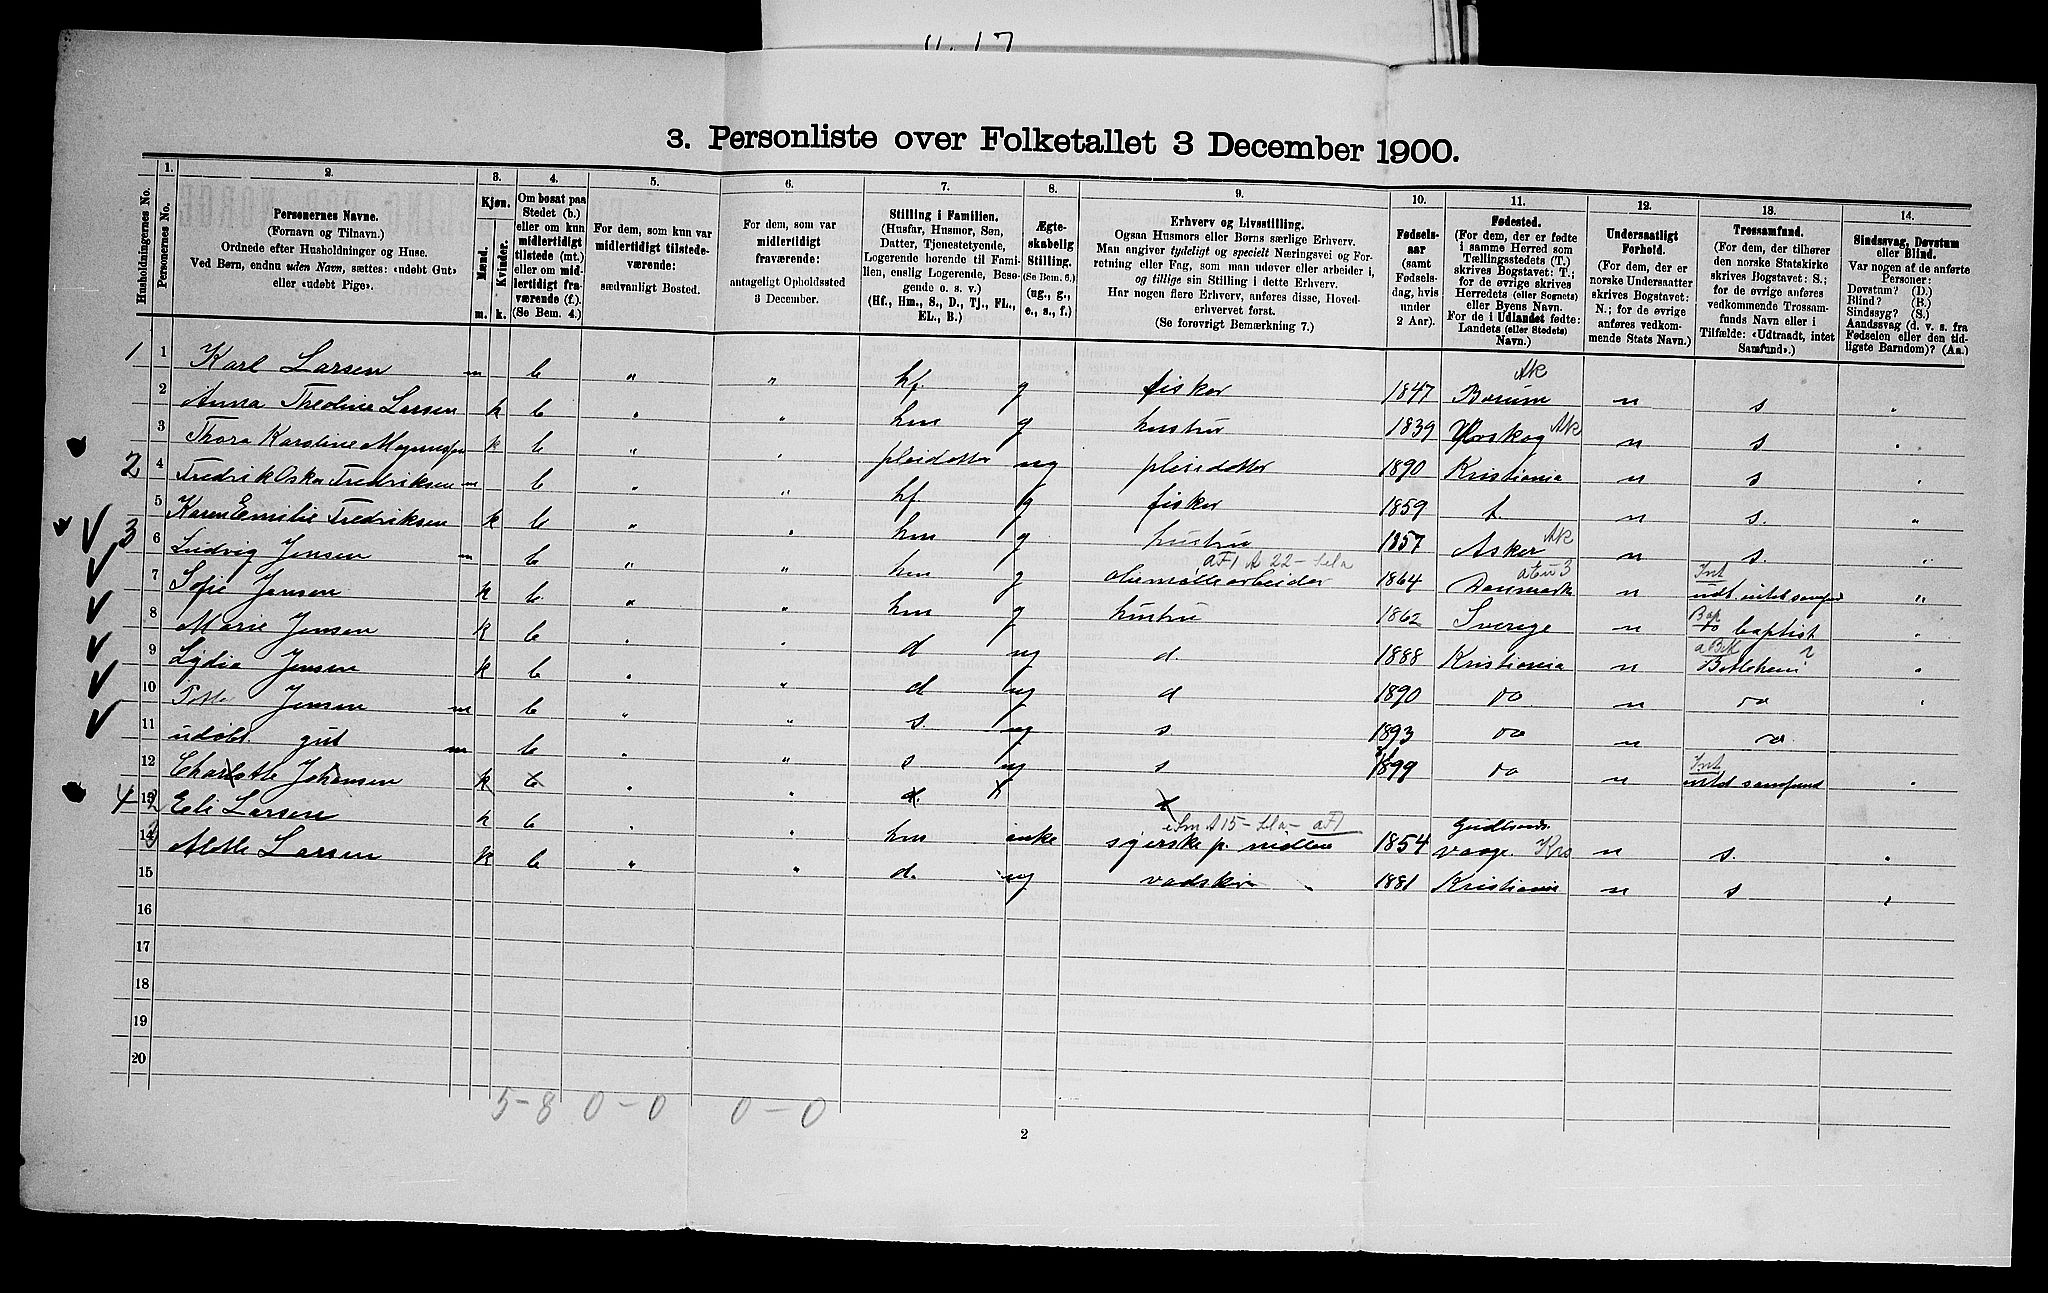 11. 17
3. Personliste over Folketallet 3 December 1900.
Husholdningernes No.
1. Personernes No.
2. Personernes Navne. (Fornavn og Tilnavn.) Ordnede efter Husholdninger og Huse. Ved Børn, endnu uden Navn, sættes: «udøbt Gut» eller «udøbt Pige».
3. Kjøn. Mænd. m. Kvinder. k.
4. Om bosat paa Stedet (b.) eller om kun midlertidigt tilstede (mt.) eller om midlertidigt fraværende (f.). (Se Bem. 4.)
5. For dem, som kun var midlertidigt tilstedeværende: sædvanligt Bosted.
6. For dem, som var midlertidigt fraværende: antageligt Opholdssted 3 December.
7. Stilling i Familien. (Husfar, Husmor, Søn, Datter, Tjenestetyende, Logerende hørende til Familien, enslig Logerende, Besøgende o. s. v.) (Hf., Hm., S., D., Tj., FL., EL., B.)
8. Ægteskabelig Stilling. (Se Bem. 6.) (ug., g., e., s., f.)
9. Erhverv og Livsstilling. Ogsaa Husmors eller Børns særlige Erhverv. Man angiver tydeligt og specielt Næringsvei og Forretning eller Fag, som man udøver eller arbeider i, og tillige sin Stilling i dette Erhverv. Har nogen flere Erhverv, anføres disse, Hovederhvervet først. (Se forøvrigt Bemærkning 7.)
10. Fødselsaar (samt Fødselsdag, hvis under 2 Aar).
11. Fødested. (For dem, der er fødte i samme Herred som Tællingsstedets (T.) skrives Bogstavet: T.; for de øvrige skrives Herredets (eller Sognets) eller Byens Navn. For de i Udlandet fødte: Landets (eller Stedets) Navn.)
12. Undersaatligt Forhold. (For dem, der er norske Undersaatter skrives Bogstavet: N.; for de øvrige anføres vedkommende Stats Navn.)
13. Trossamfund. (For dem, der tilhører den norske Statskirke skrives Bogstavet: S.; for de øvrige anføres vedkommende Trossamfunds Navn eller i Tilfælde: «Udtraadt, intet Samfund».)
14. Sindssvag, Døvstum eller Blind. Var nogen af de anførte Personer: Døvstum? (D.) Blind? (B.) Sindssyg? (S.) Aandssvag (d. v. s. fra Fødselen eller den tidligste Barndom)? (Aa.)
1 1 Karl Larsen m b " " hf. g fisker 1847 Bærum Ak n s "
2 Anna Thedine Larsen k b " " hm g hustru 1839 Urskog Ak n s
3 Thora Karstine k b " pleidatter ug pleiedatter 1890 Kristiania n s
2 4 Fredrik Oskar Fredriksen m b " " hf. g fisker 1859 t. n s.
5 Karen Emilie Fredriksen k b " " hm g hustru 1857 Asker Ak n s.
3 6 Ludvig Jensen m b " " hm g oliemøllearbeider 1864 Danmark n Int udt. intet samfund "
7 Sofie Jensen k b. " " hm g hustru 1862 Sverige n Bap baptist
8 Marie Jensen k b d ug d. 1888 Kristiania n Betlehem ?
9 Lydia Jensen k b " d ug d 1890 do n do
10 Jensen m b " " s. ug s 1893 do n do
11 udøbt gut m b " s ug s 1899 do n Int intet samfund
12 Charlotte Johansen k b " " d. d
4 13 Eli Larsen k b " hm enke syerske p. 1854 Vaage. Kra n s.
14 Larsen k b " " d. ug 1881 Kristiania n s
15
16
17
18
19
20
5-8 0-0 0-0
2